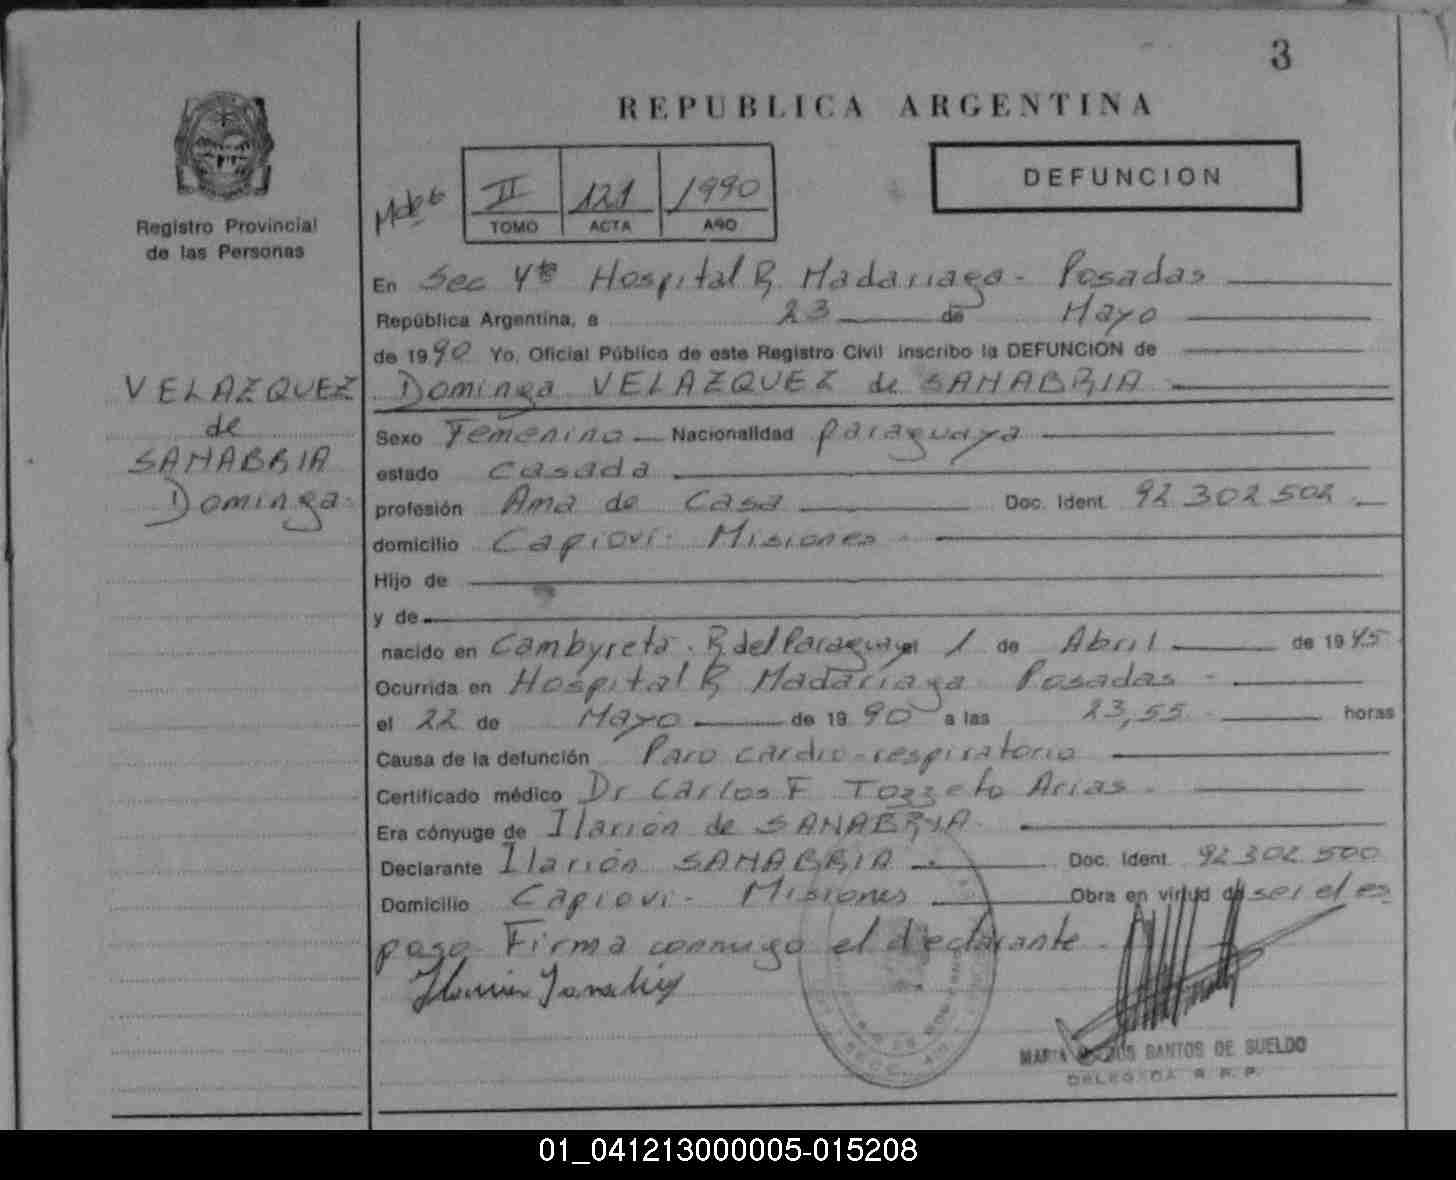 3
REPUBLICA ARGENTINA
DEFUNCION
II 121 1990
TOMO ACTA AÑO
Registro Provincial
de las Personas
VELAZQUEZ
de
SANABRIA
Dominga
En Sec 4ta Hospital R. Madariaga - Posadas
República Argentina, a 23 de Mayo
de 1990 Yo, Oficial Público de este Registro Civil inscribo la DEFUNCION de
Dominga VELAZQUEZ de SANABRIA
Sexo Femenino Nacionalidad paraguaya
estado Casada
profesión Ama de Casa Doc. Ident. 92 302 502
domicilio Capioví - Misiones
Hijo de
y de
nacido en Cambyreta. R. del Paraguay el 1 de Abril de 1945
Ocurrida en Hospital R. Madariaga Posadas -
el 22 de Mayo de 1990 a las 23,55 horas
Causa de la defunción Paro cardio-respiratorio
Certificado médico Dr Carlos F. Tozzeto Arias -
Era cónyuge de Ilarión de SANABRIA
Declarante Ilarión SANABRIA Doc. Ident. 92 302 500
Domicilio Capiovi - Misiones Obra en virtud de ser el es
poso. Firma conmigo el declarante -
SANTOS DE SUELDO
DELEGADA R. P. P.
01_041213000005-015208